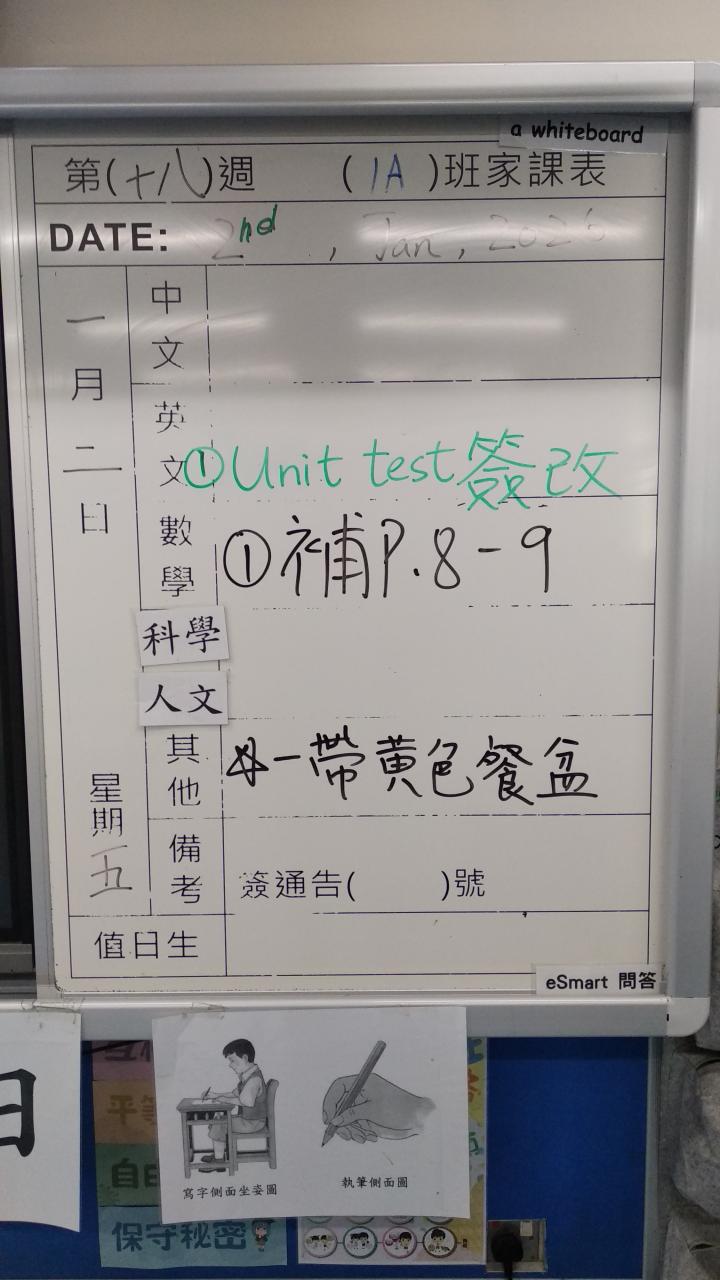 a whiteboard
第(十八)週 (1A)班家課表
DATE: 2nd , Jan, 2026
一月二日
星期五
中文
英文 ①Unit test簽改
數學 ①補P.8-9
科學
人文
其他 ☆一帶黃色餐盆
備考 簽通告( )號
值日生
eSmart 問答
日
平等
自由
保守秘密
寫字側面坐姿圖
執筆側面圖